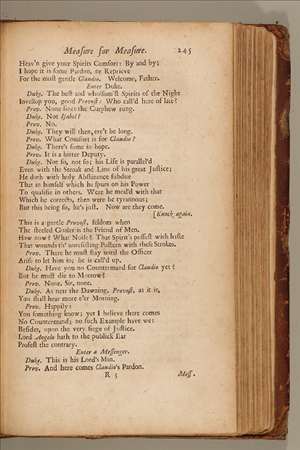 Measure for Measure. 245
Heav'n give your Spirits Comfort: By and by;
I hope it is some Pardon, or Reprieve
For the most gentle Claudio. Welcome, Father.
Enter Duke.
Duke. The best and wholsom'st Spirits of the Night
Invellop you, good Provost: Who call'd here of late?
Prov. None since the Curphew rung.
Duke. Not Isabel?
Prov. No.
Duke. They will then, ere't be long.
Prov. What Comfort is for Claudio?
Duke. There's some in hope.
Prov. It is a bitter Deputy.
Duke. Not so, not so; his Life is parallel'd
Even with the Stroak and Line of his great Justice;
He doth with holy Abstinence subdue
That in himself which he spurs on his Power
To qualifie in others. Were he meal'd with that
Which he corrects, then were he tyrannous;
But this being so, he's just. Now are they come.
[Knock again.
This is a gentle Provost, seldom when
The steeled Goaler is the Friend of Men.
How now? What Noise? That Spirit's possest with haste
That wounds th' unresisting Postern with these Strokes.
Prov. There he must stay until the Officer
Arise to let him in; he is call'd up.
Duke. Have you no Countermand for Claudio yet?
But he must die to Morrow?
Prov. None, Sir, none.
Duke. As near the Dawning, Provost, as it is,
You shall hear more e'er Morning.
Prov. Happily:
You something know; yet I believe there comes
No Countermand; no such Example have we:
Besides, upon the very siege of Justice,
Lord Angelo hath to the publick Ear
Profest the contrary.
Enter a Messenger.
Duke. This is his Lord's Man.
Prov. And here comes Claudio's Pardon.
R 3 Mess.